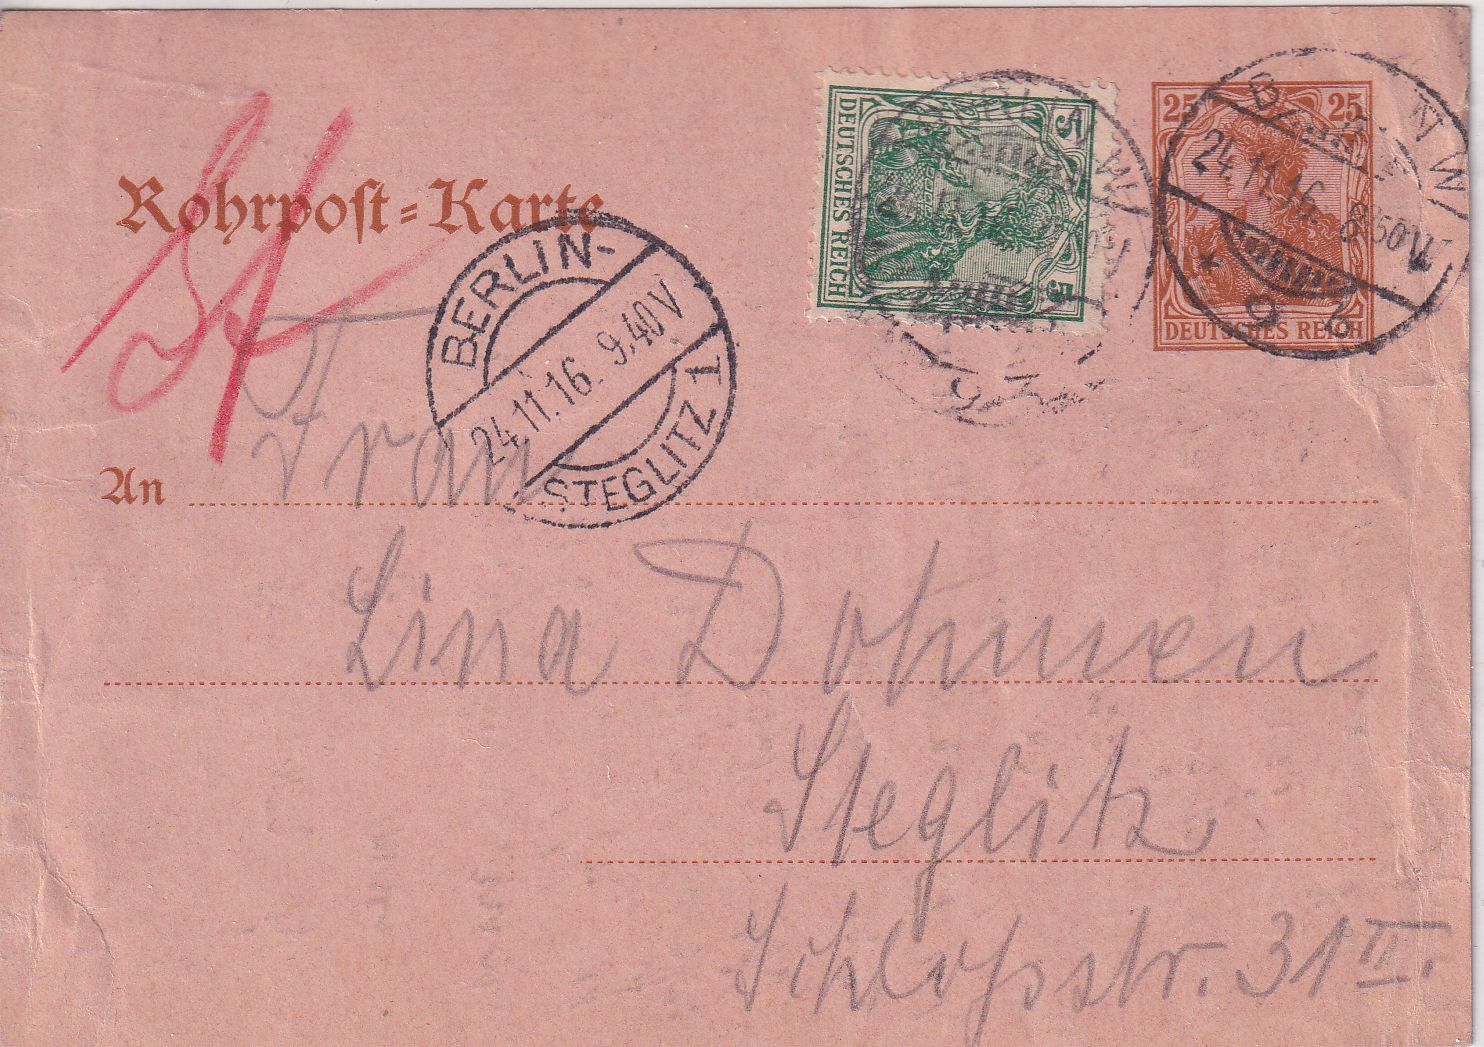 Rohrpost=Karte
5
5
DEUTSCHES REICH
25 25
DEUTSCHES REICH
24.11.16. 8 50 V
BERLIN-
24.11.16. 9.40 V
STEGLITZ 1
An Frau
Lina Dohmen
Steglitz
Schloßstr. 31 II.